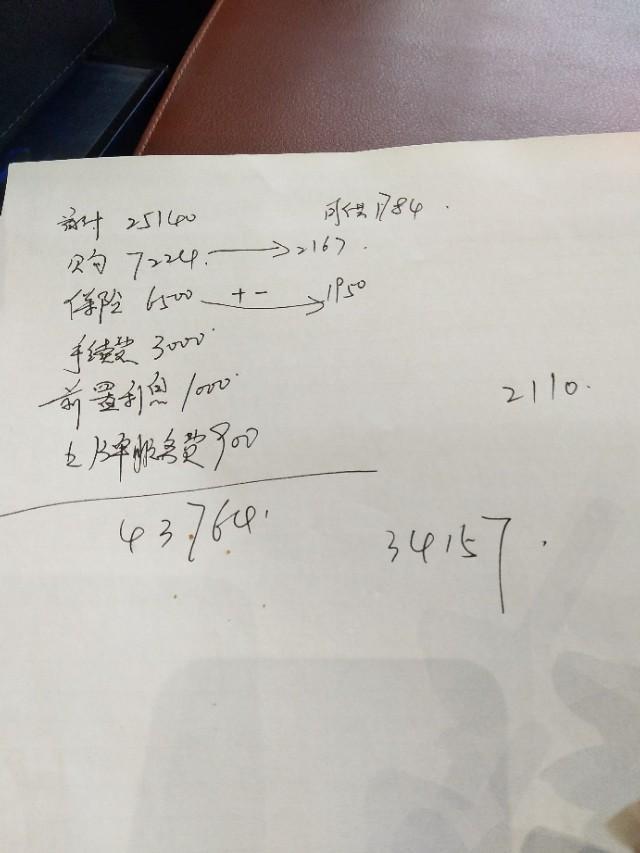 首付 25140 月供 1784.
购 7224. → 2167.
保险 6500 + - → 1950
手续费 3000
前置利息 1000
2110.
上牌服务费 900
43764.
34157.